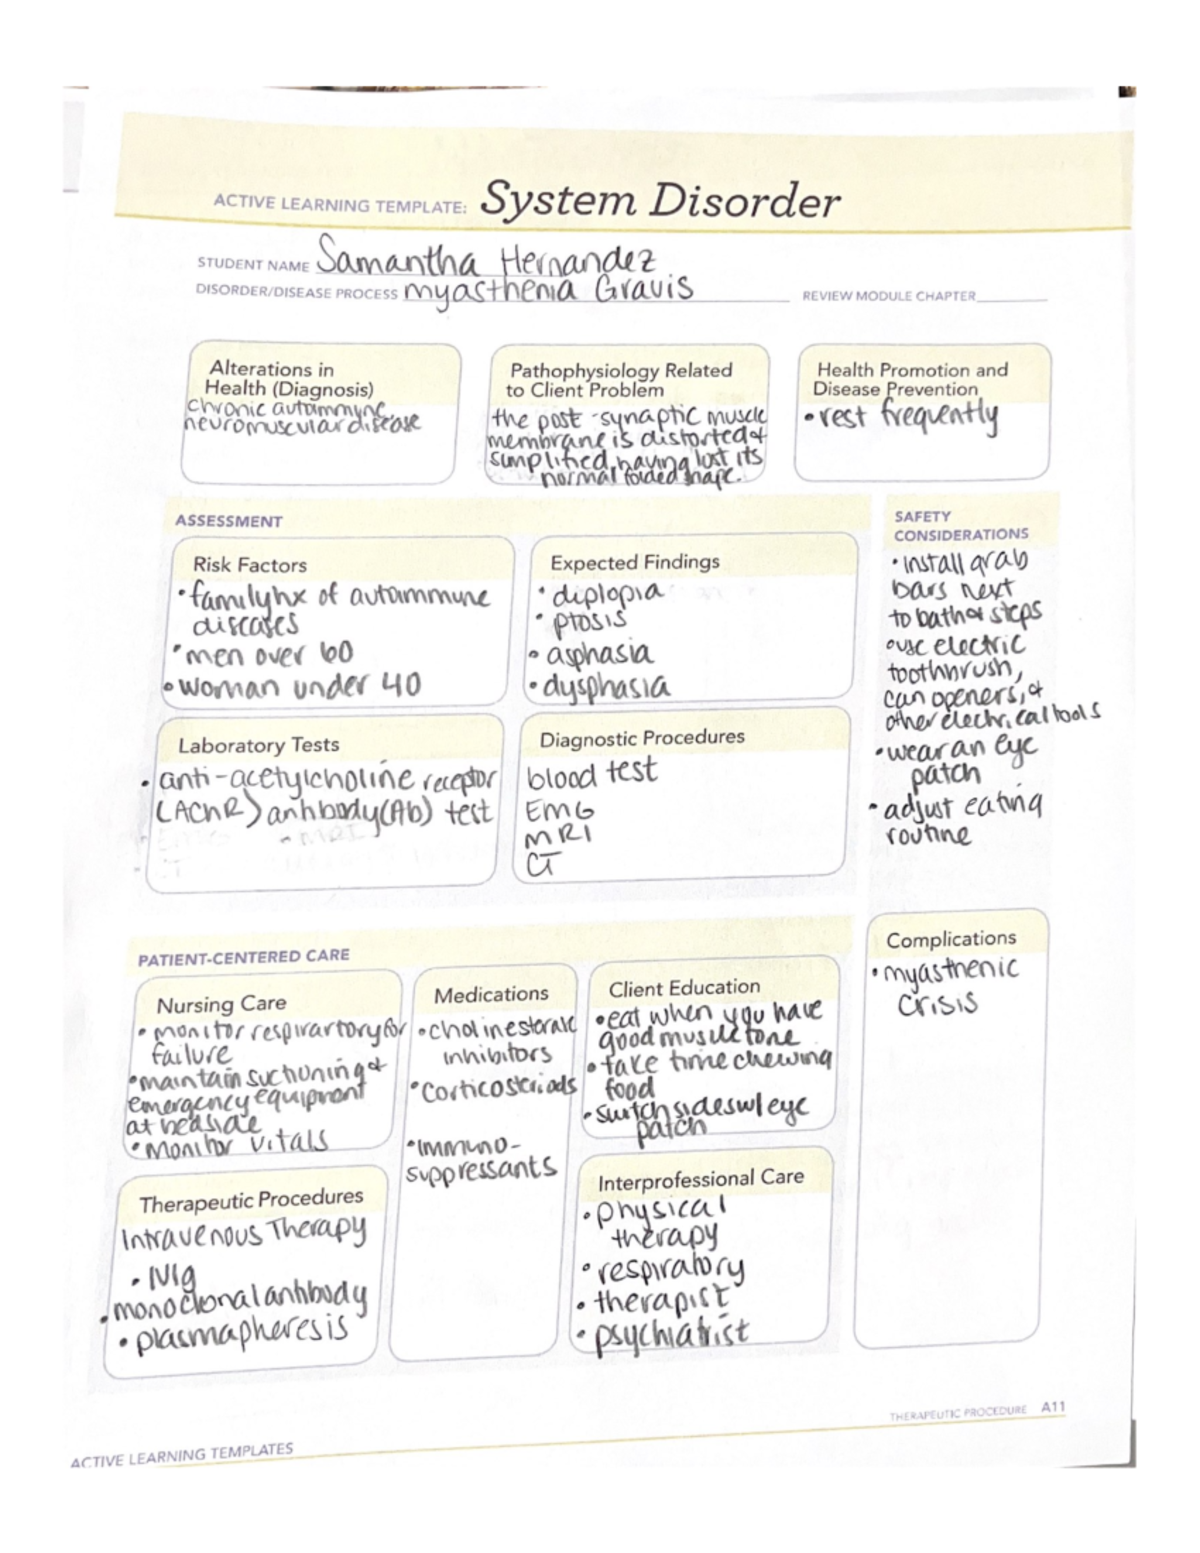 ACTIVE LEARNING TEMPLATE: System Disorder
STUDENT NAME Samantha Hernandez
DISORDER/DISEASE PROCESS myasthenia Gravis REVIEW MODULE CHAPTER
Alterations in
Health (Diagnosis)
chronic autoimmyne
neuromuscular disease
Pathophysiology Related
to Client Problem
the post-synaptic muscle
membrane is distorted &
simplified, having lost its
normal folded shape.
Health Promotion and
Disease Prevention
• rest frequently
ASSESSMENT
Risk Factors
• family hx of autoimmune
diseases
• men over 60
• woman under 40
Expected Findings
• diplopia
• ptosis
• asphasia
• dysphasia
Laboratory Tests
• anti-acetylcholine receptor
(AChR) antibody (Ab) test
Diagnostic Procedures
blood test
EMG
MRI
CT
SAFETY
CONSIDERATIONS
• install grab
bars next
to bath or steps
• use electric
toothbrush,
can openers, &
other electrical tools
• wear an eye
patch
• adjust eating
routine
PATIENT-CENTERED CARE
Nursing Care
• monitor respirartory for
failure
• maintain suctioning &
emergency equipment
at bedside
• Monitor vitals
Medications
• cholinesterase
inhibitors
• Corticosteriods
• Immuno-
suppressants
Client Education
• eat when you have
good muscle tone
• take time chewing
food
• switch sides w/ eye
patch
Therapeutic Procedures
Intravenous Therapy
• IVIg
• monoclonal antibody
• plasmapheresis
Interprofessional Care
• physical
therapy
• respiratory
• therapist
• psychiatrist
Complications
• myasthenic
crisis
THERAPEUTIC PROCEDURE A11
ACTIVE LEARNING TEMPLATES